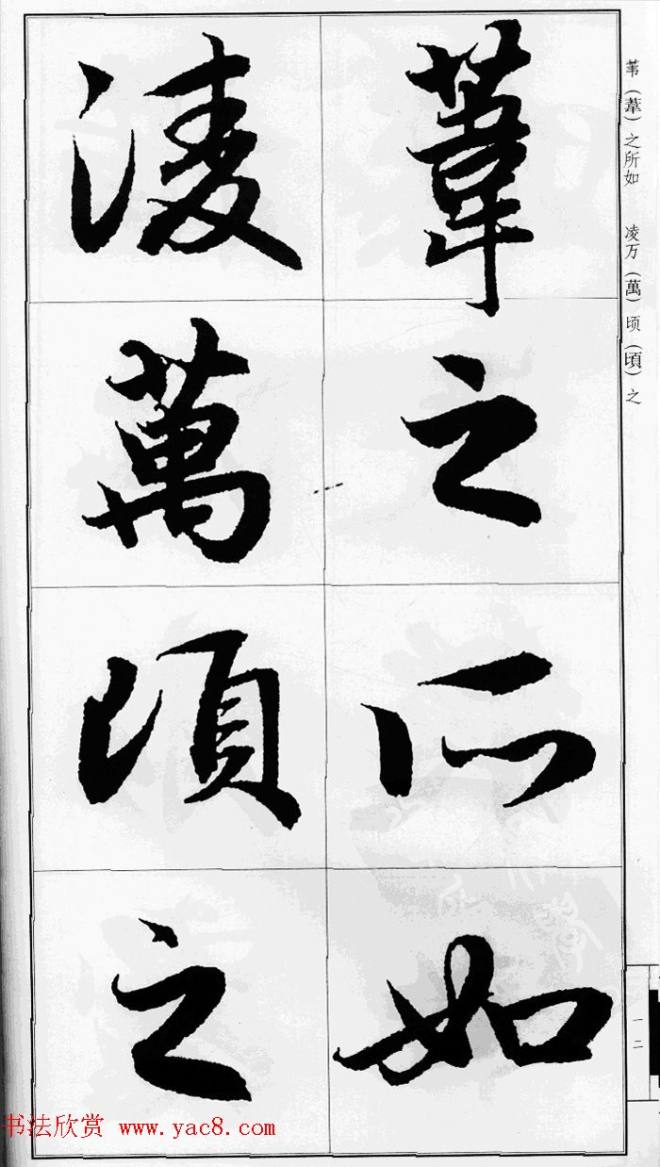 苇（葦）之所如　凌万（萬）顷（頃）之
葦之所如
凌萬頃之
一二
书法欣赏 www.yac8.com